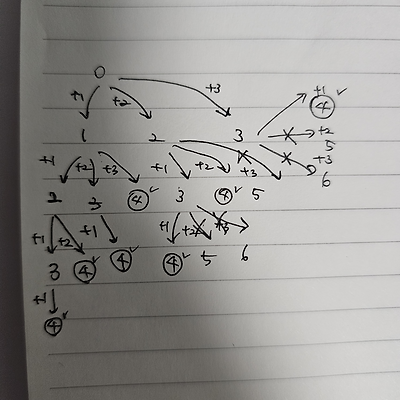 0
+1 +2 +3 +1 ④ ✓
1 2 3 +2 5
+1 +2 +3 +1 +2 +3 +3 6
2 3 ④ ✓ 3 ④ ✓ 5
+1 +2 +1 +1 +2 +3
3 ④ ✓ ④ ✓ ④ ✓ 5 6
+1
④ ✓